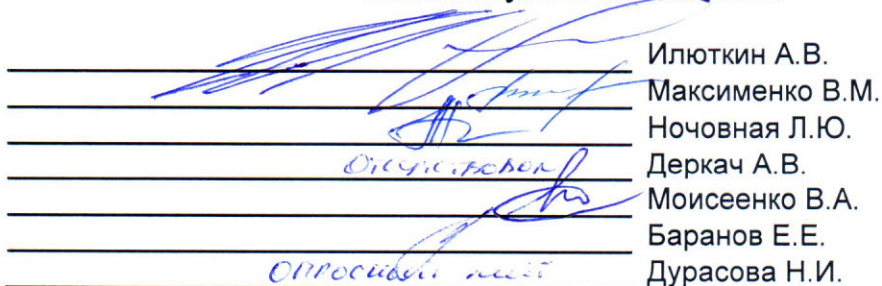 Илюткин А.В.
Максименко В.М.
Ночовная Л.Ю.
Отсутствовал Деркач А.В.
Моисеенко В.А.
Баранов Е.Е.
Опросный лист Дурасова Н.И.